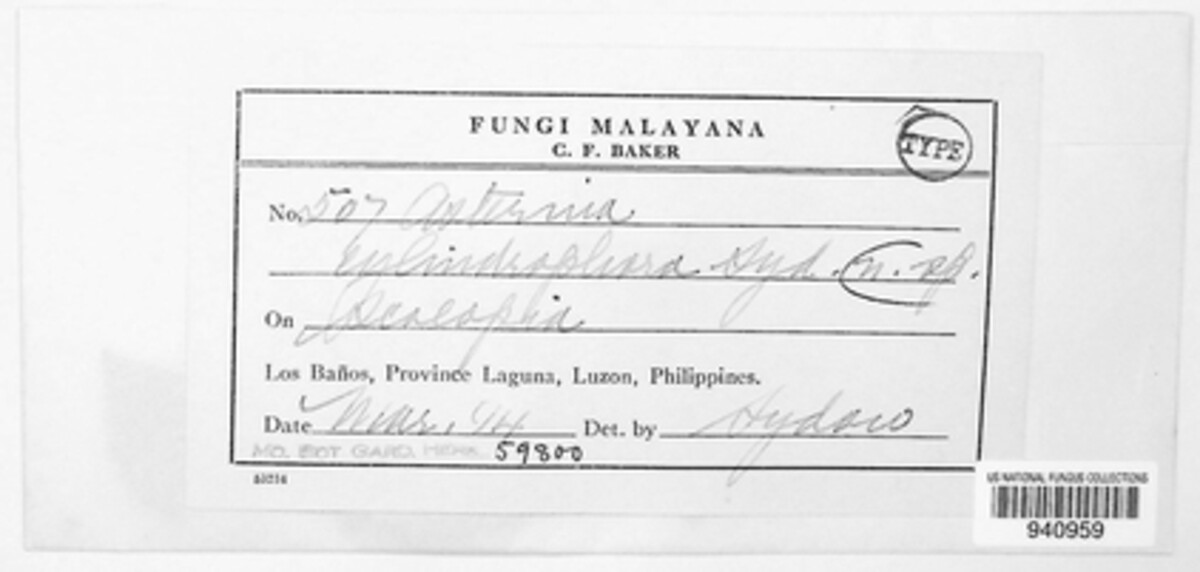 FUNGI MALAYANA
C. F. BAKER
TYPE
No. 507 Asterina
cylindrophora Syd. n. sp.
On Scolopia
Los Baños, Province Laguna, Luzon, Philippines.
Date Mar. '14 Det. by Sydow
MO. BOT. GARD. HERB. 59800
US NATIONAL FUNGUS COLLECTIONS
940959